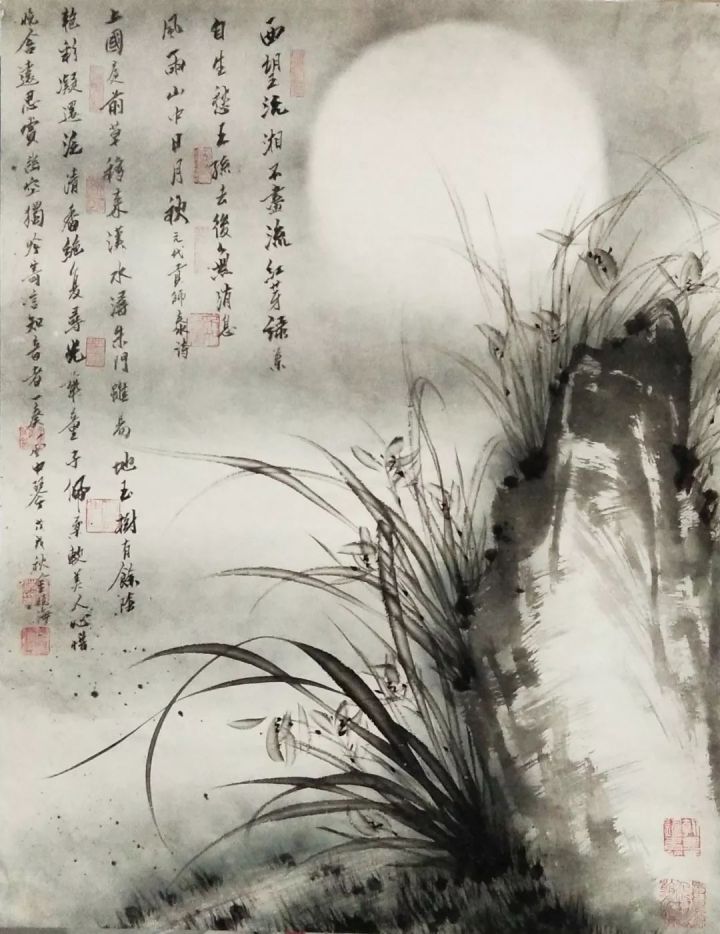 西望沅湘不盡流紅芽綠
自生愁王孫去後無消息
風雨山中日月秋元代貢師泰詩
上國庭前草移來漢水潯朱門雖易地玉樹有餘陰
艷彩凝還泛清香絕復尋光華童子佩柔軟美人心惜
晚含遠思賞幽空獨吟寄言知音者一奏風中琴戊戌秋金